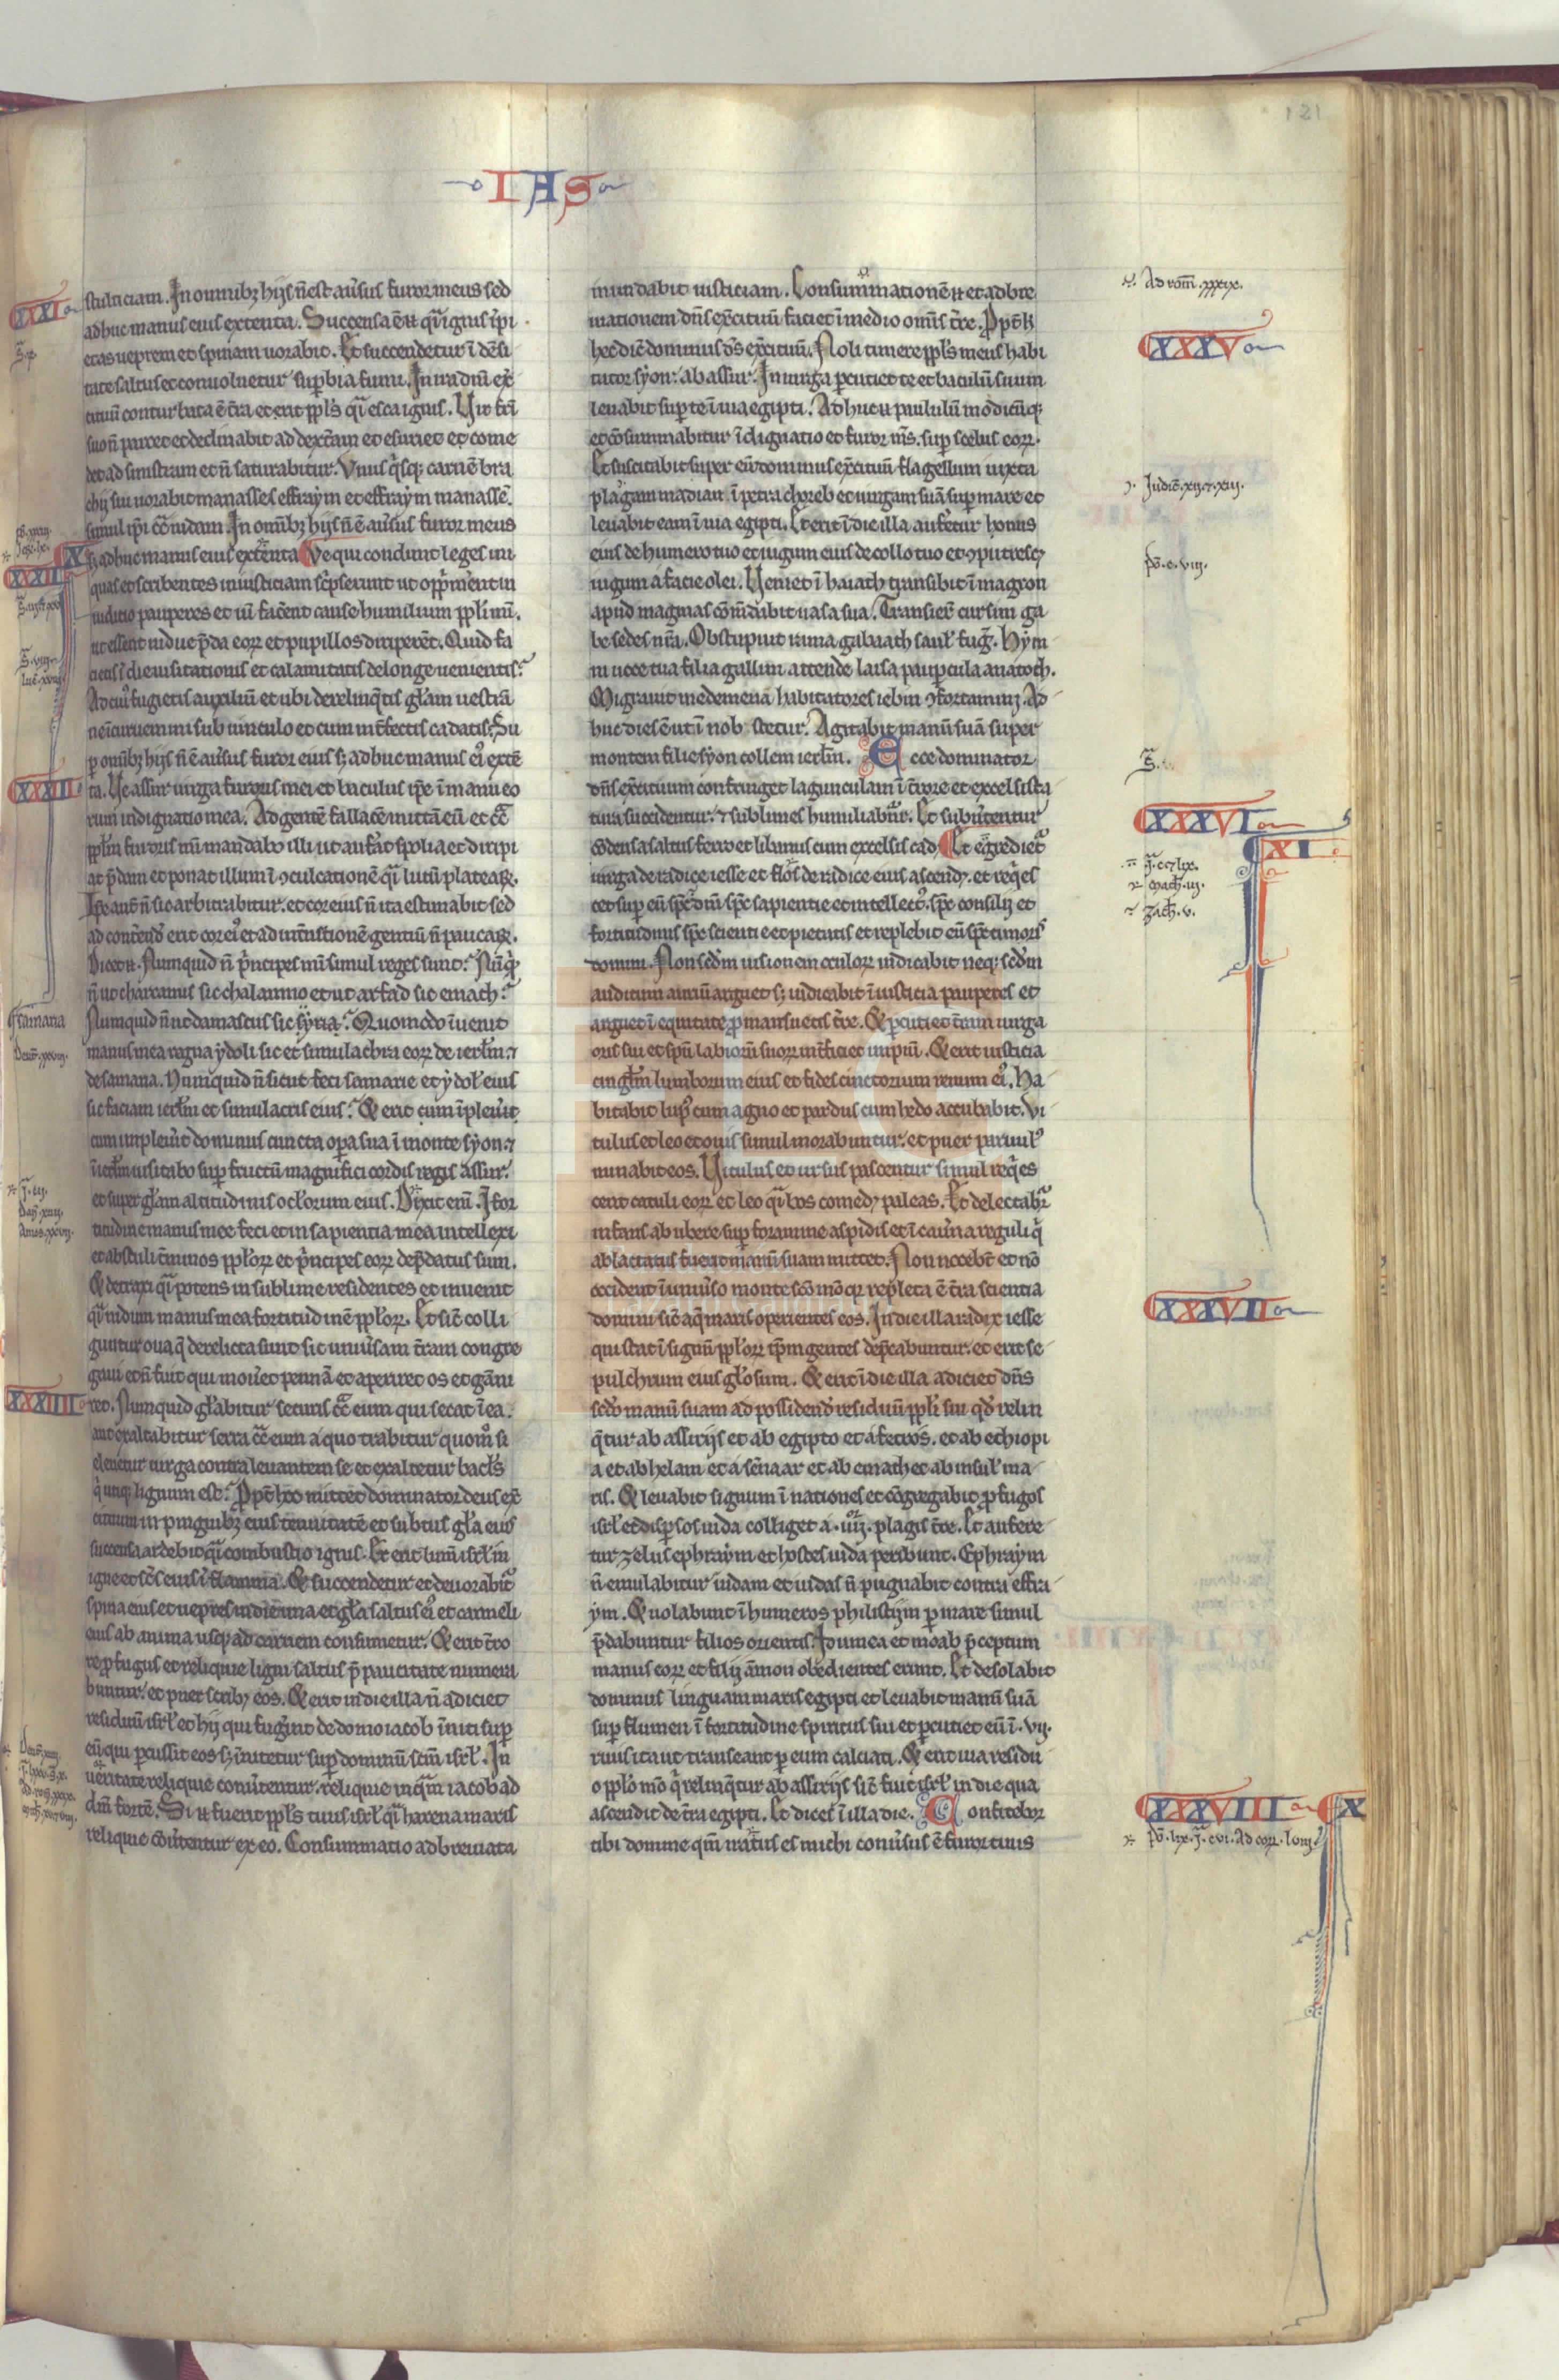 121
IAS
stulticiam. In omnibꝫ hijs ñ est aūsus furor meus sed
adhuc manus eius extenta. Succensa ē
etas ueprem et spinam uorabit. Et succendetur ī dēsi
tate saltus et conuoluetur suꝑbia fumi. In
cituū conturbata ē t̄ra et erit ppl̄s esca ignis. Vir
suo ñ parcet et declinabit ad dext̄am et esuriet et come
det ad sinistram et ñ saturabitur. Vnus carnē bra
chij sui uorabit manasses effraym et effraym manassē.
simul ip̄i 9t̄ iudam. In omībꝫ hijs ñ ē aūsus furor meus
sꝫ adhuc manus eius extenta Ve qui condunt leges ini
quas et scribentes iniusticiam sc̄pserunt ut opp̄merent in
iudicio pauperes et uī facerent cause humilium ppl̄i mī.
ut essent uidue p̄da eoꝝ et pupillos diriperēt. Quid fa
cietis ī die uisitationis et calamitatis de longe uenientis?
Ad cuiꝰ fugietis auxiliū et ubi derelinq̄tis gl̄am uestrā
ne īcuruemini sub uinculo et cum int̄fectis cadatis? Su
ꝑ omībꝫ hijs ñ ē aūsus furor eius sꝫ adhuc manus eiꝰ extē
ta. Ve assur uirga furoris mei et baculus ip̄e ī manu eo
rum indignatio mea. Ad gentē fallacē mittā eū et 9t̄
ppl̄m furoris mī mandabo illi ut aufat spolia et diripi
at p̄dam et ponat illum ī 9culcationē lutū plateaꝝ.
Ip̄e aut̄ ñ sic arbitrabitur. et cor eius ñ ita estimabit sed
ad conterend̄ erit cor eiꝰ et ad int̄nitionē gentiū ñ paucaꝝ.
Dicet .n. Numquid ñ p̄ncipes mī simul reges sunt?
ñ ut charcamis sic chalanno et ut arfad sic emath?
Numquid ñ ut damascus sic syria? Quomodo īuenit
manus mea regna ydoli sic et simulachra eoꝝ de ierl̄m ⁊
de samaria. Nunquid ñ sicut feci samarie et ydol' eius
sic faciam ierl̄m et simulacris eius? Et erit cum īpleūit
cum impleūit dominus cuncta oꝑa sua ī monte syon ⁊
ī ierl̄m uisitabo suꝑ fructū magnifici cordis regis assur.
et super gl̄am altitudinis ocl̄orum eius. Dixit enī. In for
titudine manus mee feci et in sapientia mea intellexi
et abstuli t̄minos ppl̄oꝝ et p̄ncipes eoꝝ dep̄datus sum.
Et detraxi potens in sublime residentes et inuenit
nidum manus mea fortitudinē ppl̄oꝝ. Et sic̄ colli
guntur oua q̄ derelicta sunt sic uniūsam t̄ram congre
gaui et ñ fuit qui moūet pennā et aperiret os et gāni
ret. Numquid gl̄abitur securis 9t̄ eum qui secat ī ea.
aut exaltabitur serra 9t̄ eum a quo trahitur quomō si
eleuetur uirga contra leuantem se et exaltetur bacl̄s
lignum est? Ppt̄ hoc mittet dominator deus ex̄
cituum in pinguibꝫ eius tenuitatē et subtus gl̄a eius
succensa ardebit combustio ignis. Et erit lum̄ isrl̄ in
igne et sc̄s eius ī flamma. Et succendetur et deuorabit̄
spina eius et uepres in die una et gl̄a saltus eiꝰ et carmeli
eius ab anima usqꝫ ad carnem consumetur. Et erit t̄ro
re ꝓfugus et relique ligni saltus p̄ paucitate numera
buntur. et puer scribꝫ eos. Et erit in die illa ñ adiciet
residuū isrl̄ et hij qui fuḡint de domo iacob īniti suꝑ
eū qui ꝑcussit eos sꝫ īnitetur suꝑ dominū sc̄m isrl̄. In
ueritate relique conūtentur. relique inq̄m iacob ad
dm̄ fortē. Si fuerit ppl̄s tuus isrl̄ harena maris
relique conūtentur ex eo. Consummatio adbreuiata
inundabit iusticiam. Consummationē et adbre
uiationem dn̄s ex̄cituū faciet ī medio om̄is t̄re. Ppt̄
hec dic̄ dominus ds̄ ex̄cituū. Noli timere ppl̄s meus habi
tator syon ab assur. In uirga ꝑcutiet te et baculū suum
leuabit suꝑ te ī uia egipti. Adhuc paululū modicūqꝫ
et cōsummabitur īdignatio et furor m̄s. suꝑ scelus eoꝝ.
Et suscitabit super eū dominus ex̄cituū flagellum iuxta
plagam madian ī petra choreb et uirgam suā suꝑ mare et
leuabit eam ī uia egipti. Et erit ī die illa auferetur honus
eius de humero tuo et iugum eius de collo tuo et 9putresꝫ
iugum a facie olei. Veniet ī haiath transibit ī magron
apud magmas cōm̄dabit uasa sua. Transier̄ cursim ga
be sedes nr̄a. Obstupuit rama gabaath saul' fuḡ. Hyn
ni uoce tua filia gallim attende laisa pauꝑcula anatoch.
Migrauit medemena habitatores iebin 9fortamini. Ad
huc dies ē ut ī nob stetur. Agitabit manū suā super
montem filie syon collem ierl̄m. Ecce dominator
dn̄s ex̄cituum confringet lagunculam ī t̄rore et excelsi sta
tura succidentur. ⁊ sublimes humiliabt̄r. Et subūtentur
condensa saltus ferro et libanus cum excelsis cad Et egrediet̄
uirga de radice iesse et flos de radice eius ascendꝫ. et req̄es
cet suꝑ eū sp̄c dn̄i sp̄c sapientie et intellectꝰ. sp̄c consilij et
fortitudinis sp̄c scientie et pietatis et replebit eū sp̄c timoris
domini. Non sed̄m uisionem oculoꝝ iudicabit neqꝫ sed̄m
auditum auriū arguet sꝫ iudicabit ī iusticia pauperes et
arguet ī equitate ꝓ mansuetis t̄re. Et ꝑcutiet t̄ram uirga
oris sui et spū labiorū suoꝝ int̄ficiet impiū. Et erit iusticia
cingl̄m lumborum eius et fides cinctorium renum eiꝰ. Ha
bitabit lupꝰ cum agno et pardus cum hedo accubabit. Vi
tulus et leo et ouis simul morabuntur. et puer paruulꝰ
minabit eos. Vitulus et ursus pascentur simul req̄es
cent catuli eoꝝ et leo bos comedꝫ paleas. Et delectabr̄
infans ab ubere suꝑ foramine aspidis et ī cauna reguli q̄
ablactatus fuerit manū suam mittet. Non nocebt̄ et nō
occident ī uniūso monte sc̄o mō qꝛ repleta ē t̄ra scientia
domini sic̄ aq̄ maris operientes eos. In die illa radix iesse
qui stat ī signū ppl̄oꝝ ip̄m gentes dep̄cabuntur. et erit se
pulchrum eius gl̄osum. Et erit ī die illa adiciet dn̄s
scd̄o manū suam ad possidend̄ residuū ppl̄i sui qd̄ relin
q̄tur ab assirijs et ab egipto et a fetros. et ab ethiopi
a et ab helam et a sēnaar et ab emath et ab insul' ma
ris. Et leuabit signum ī nationes et cōgregabit ꝓfugos
isrl̄ et disꝑsos iuda colliget a .iiij. plagis t̄re. Et aufere
tur zelus ephraym et hostes iuda peribunt. Ephraym
ñ emulabitur iudam et iudas ñ pugnabit contra effra
ym. Et uolabunt ī humeros philistijm ꝑ mare simul
p̄dabuntur filios orientis. Idumea et moab p̄ceptum
manus eoꝝ et filij āmon obedientes erunt. Et desolabit
dominus linguam maris egipti et leuabit manū suā
suꝑ flumen ī fortitudine spiritus sui et ꝑcutiet eū ī .vij.
riuis ita ut transeant ꝑ eum calciati. Et erit uia residu
o ppl̄o mō q̄ relinq̄tur ab assirijs sic̄ fuit isrl̄ in die qua
ascendit de t̄ra egipti. Et dices ī illa die. Confitebor
tibi domine qm̄ iratus es michi conūsus ē furor tuus
XXXI
X
XXXII
XXXIII
samaria
XXXIIII
Ad rom̄ .xxxix.
XXXV
Judic̄ .xij. ⁊ .xiij.
XXXVI
XI
zach̄ .v.
XXXVII
XXXVIII
X